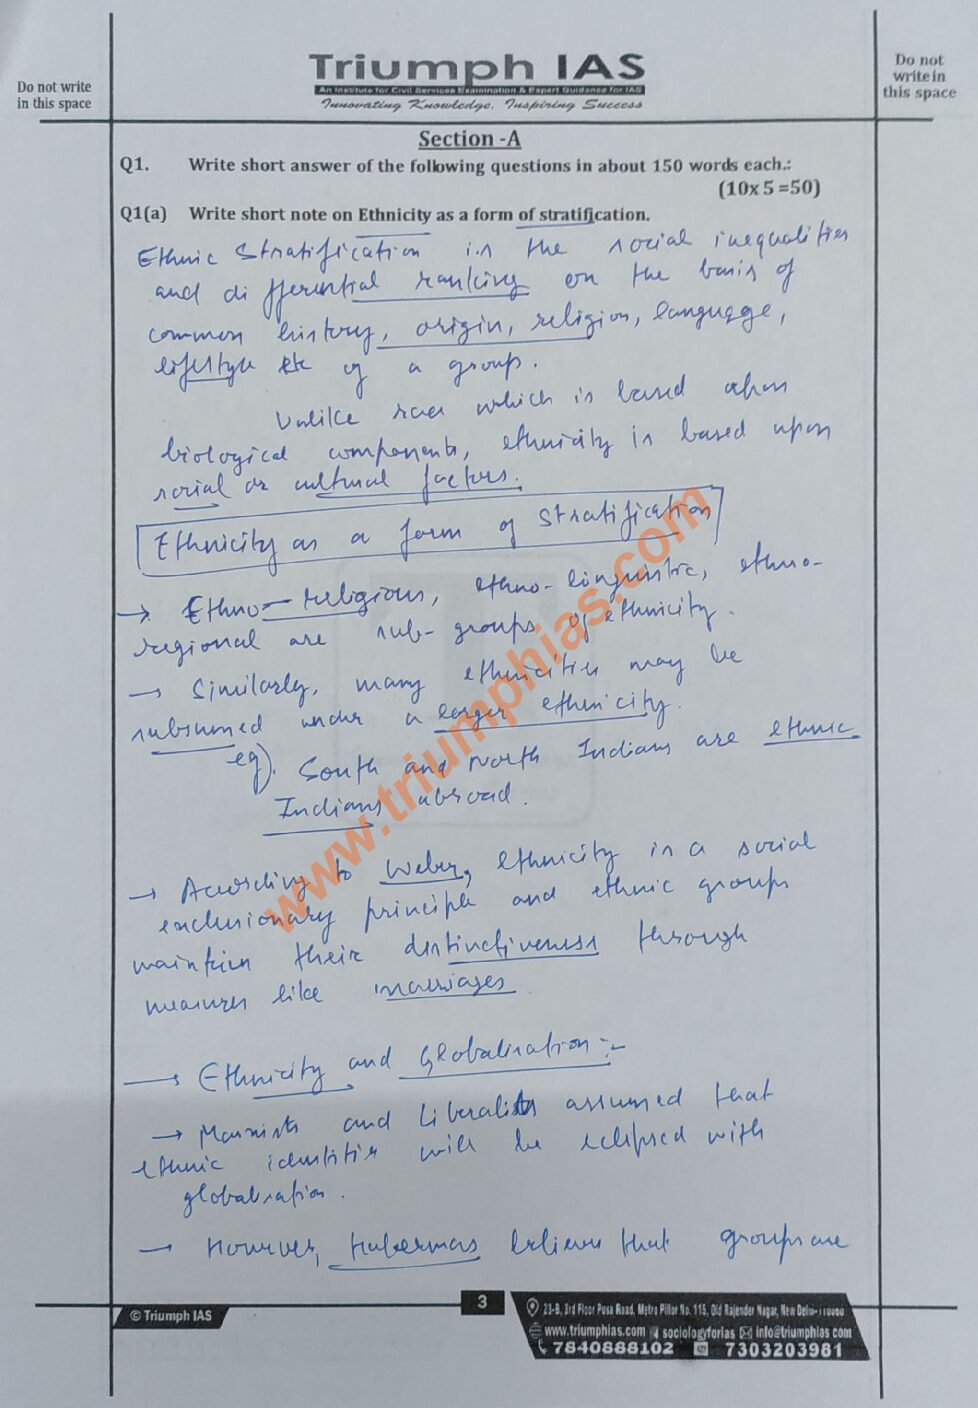 Do not write
in this space
Triumph IAS
An Institute for Civil Services Examination & Expert Guidance for IAS
Innovating Knowledge, Inspiring Success
Do not
write in
this space
Section -A
Q1. Write short answer of the following questions in about 150 words each.:
(10x 5 =50)
Q1(a) Write short note on Ethnicity as a form of stratification.
Ethnic Stratification is the social inequalities
and differential ranking on the basis of
common history, origin, religion, language,
lifestyle etc of a group.
Unlike race which is based upon
biological components, ethnicity is based upon
social or cultural factors.
Ethnicity as a form of stratification
→ Ethno-religious, ethno-linguistic, ethno-
regional are sub-groups of ethnicity.
→ Similarly, many ethnicities may be
subsumed under a larger ethnicity.
eg). South and North Indians are ethnic
Indians abroad.
→ According to Weber, ethnicity is a social
exclusionary principle and ethnic groups
maintain their distinctiveness through
measures like marriages
→ Ethnicity and Globalisation :-
→ Marxists and liberalists assumed that
ethnic identities will be eclipsed with
globalisation.
→ However, Habermas believes that groups are
www.triumphias.com
© Triumph IAS
3
23-B, 3rd Floor Pusa Road, Metro Pillor No. 115, Old Rajender Nagar, New Delhi-110060
www.triumphias.com sociologyforias info@triumphias.com
7840888102 7303203981